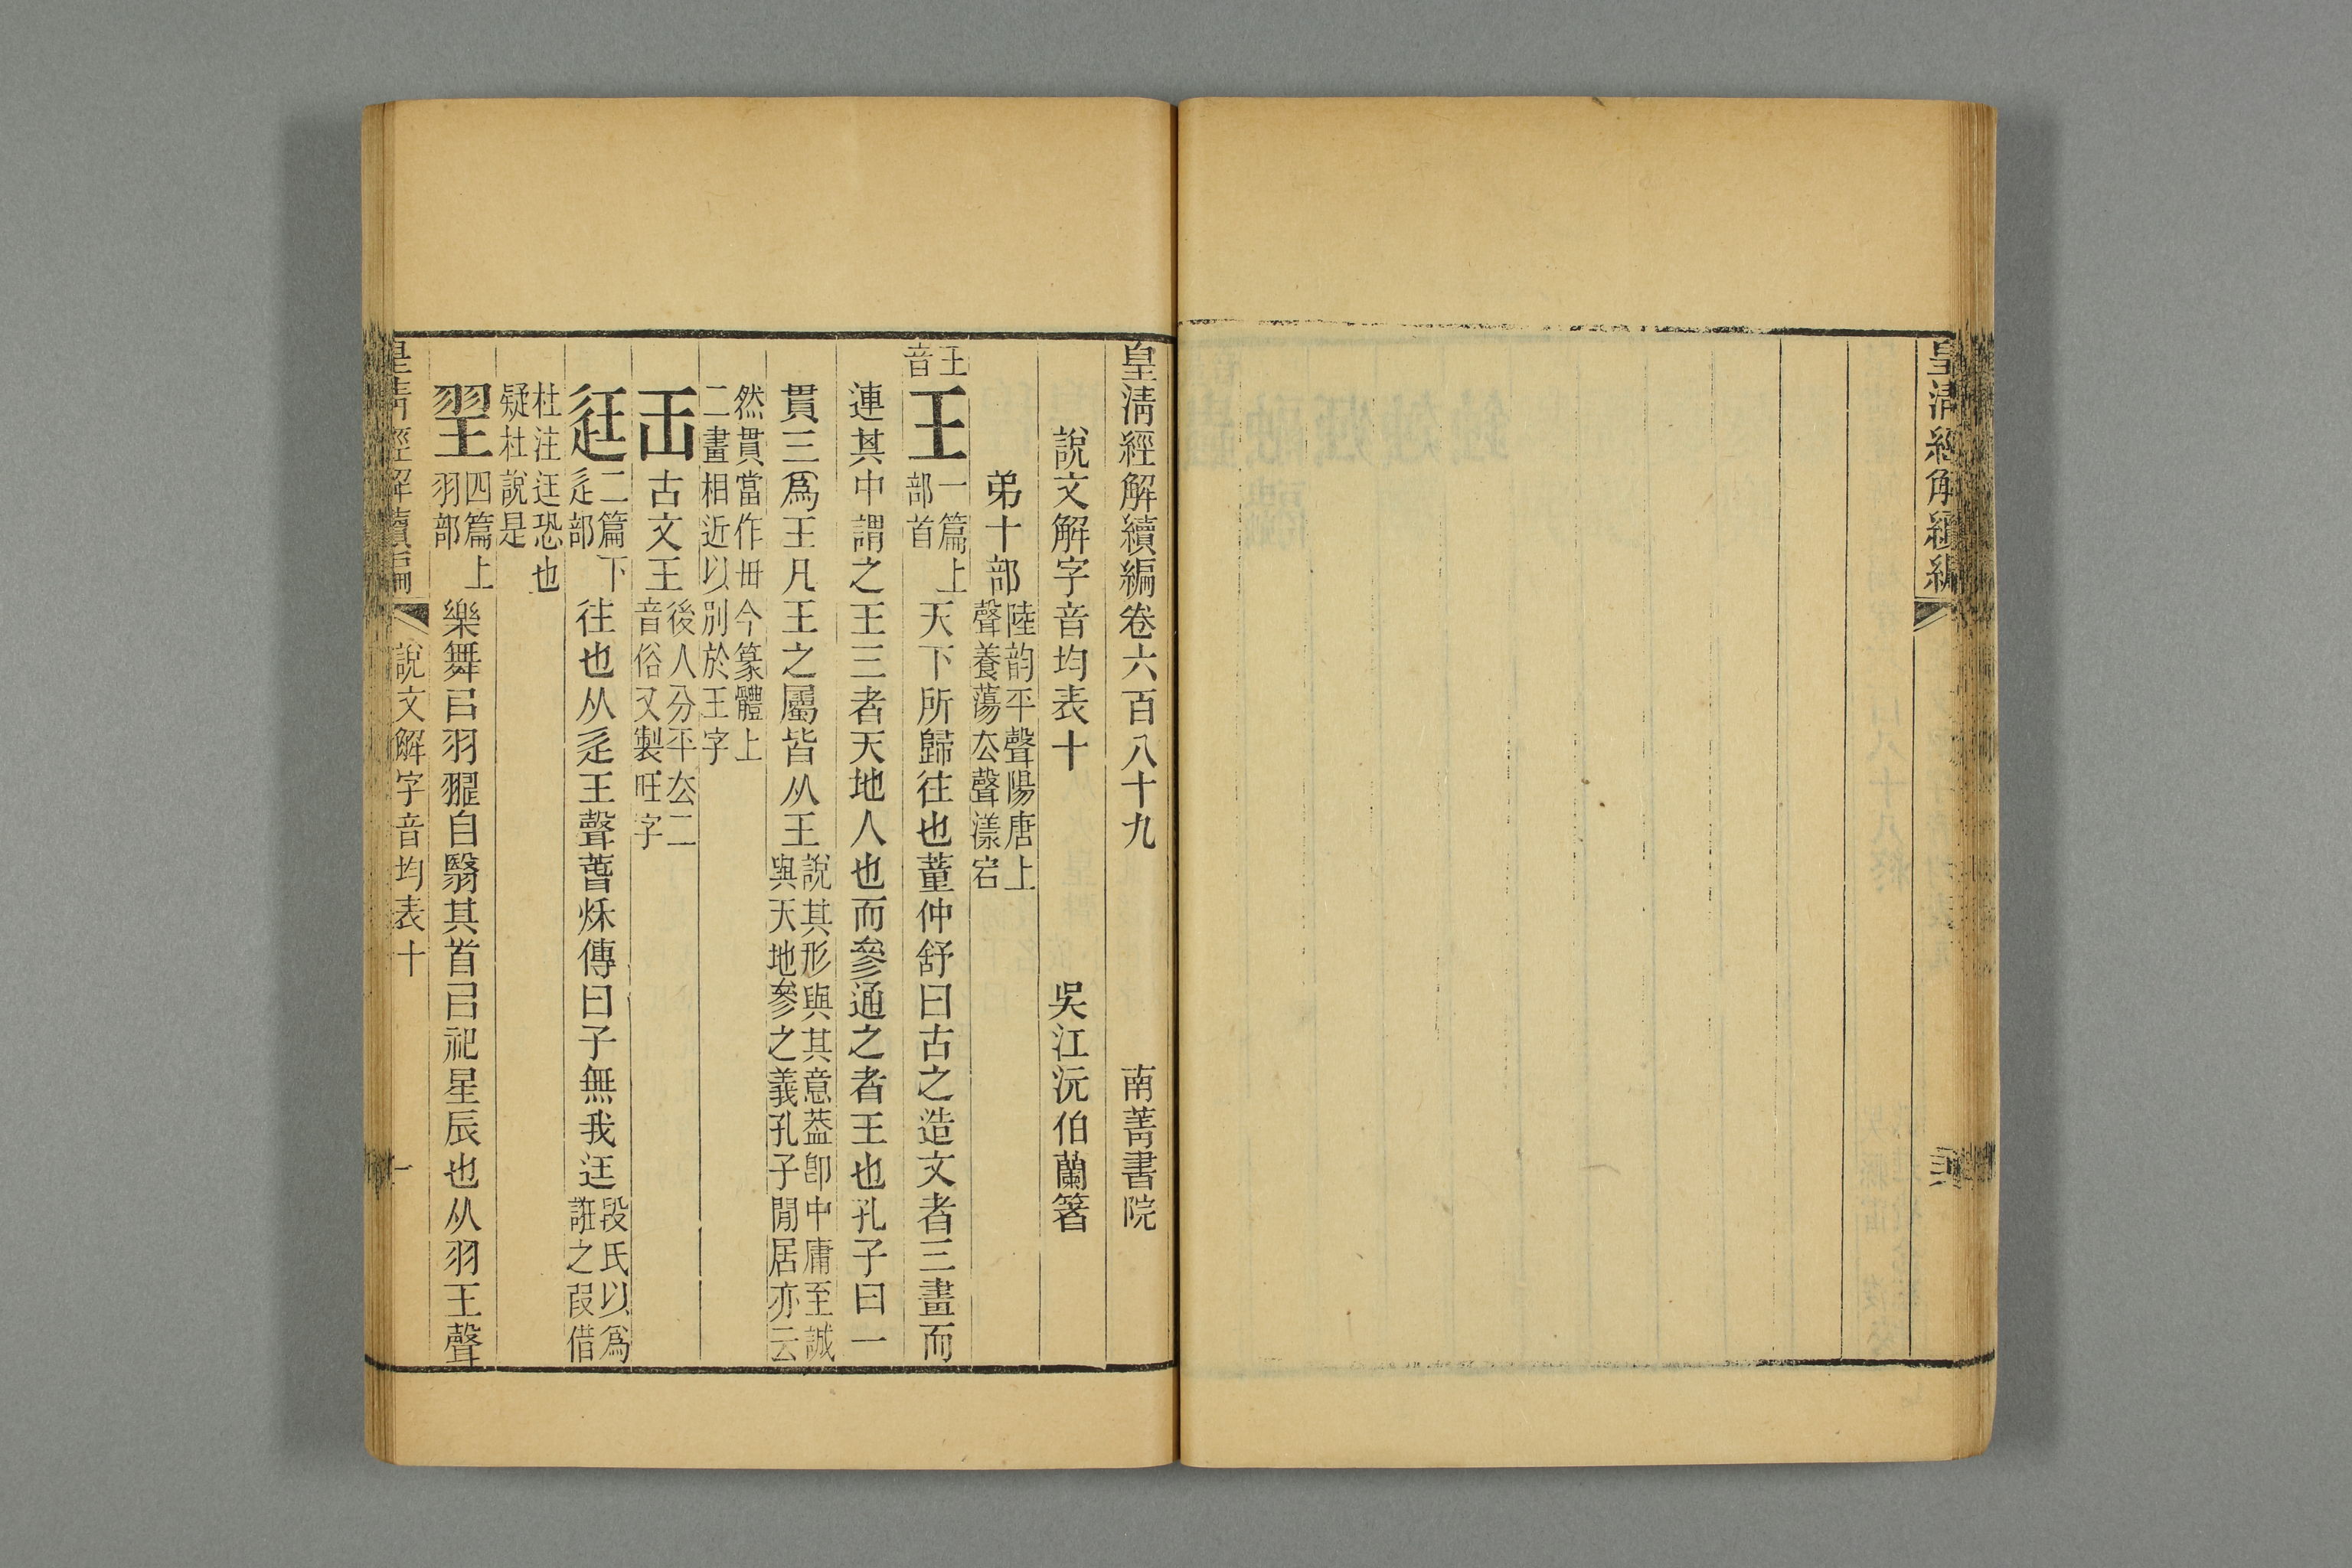 皇清經解續編
皇清經解續編卷六百八十九　南菁書院
說文解字音均表十　吳江沅伯蘭箸
弟十部　陸韵平聲陽唐上
聲養蕩厺聲漾宕
王音
王　一篇上
部首　天下所歸往也董仲舒曰古之造文者三畫而
連其中謂之王三者天地人也而參通之者王也孔子曰一
貫三爲王凡王之屬皆从王　說其形與其意葢卽中庸至誠
與天地參之義孔子閒居亦云
然貫當作毌今篆體上
二畫相近以別於王字
𠙻　古文王　後人分平厺二
音俗又製旺字
𨓹　二篇下
辵部　往也从辵王聲萅秌傳曰子無我迋　段氏以爲
誑之叚借
杜注迋恐也
疑杜說是
翌　四篇上
羽部　樂舞㠯羽翿自翳其首㠯祀星辰也从羽王聲
皇清經解續編　說文解字音均表十　一